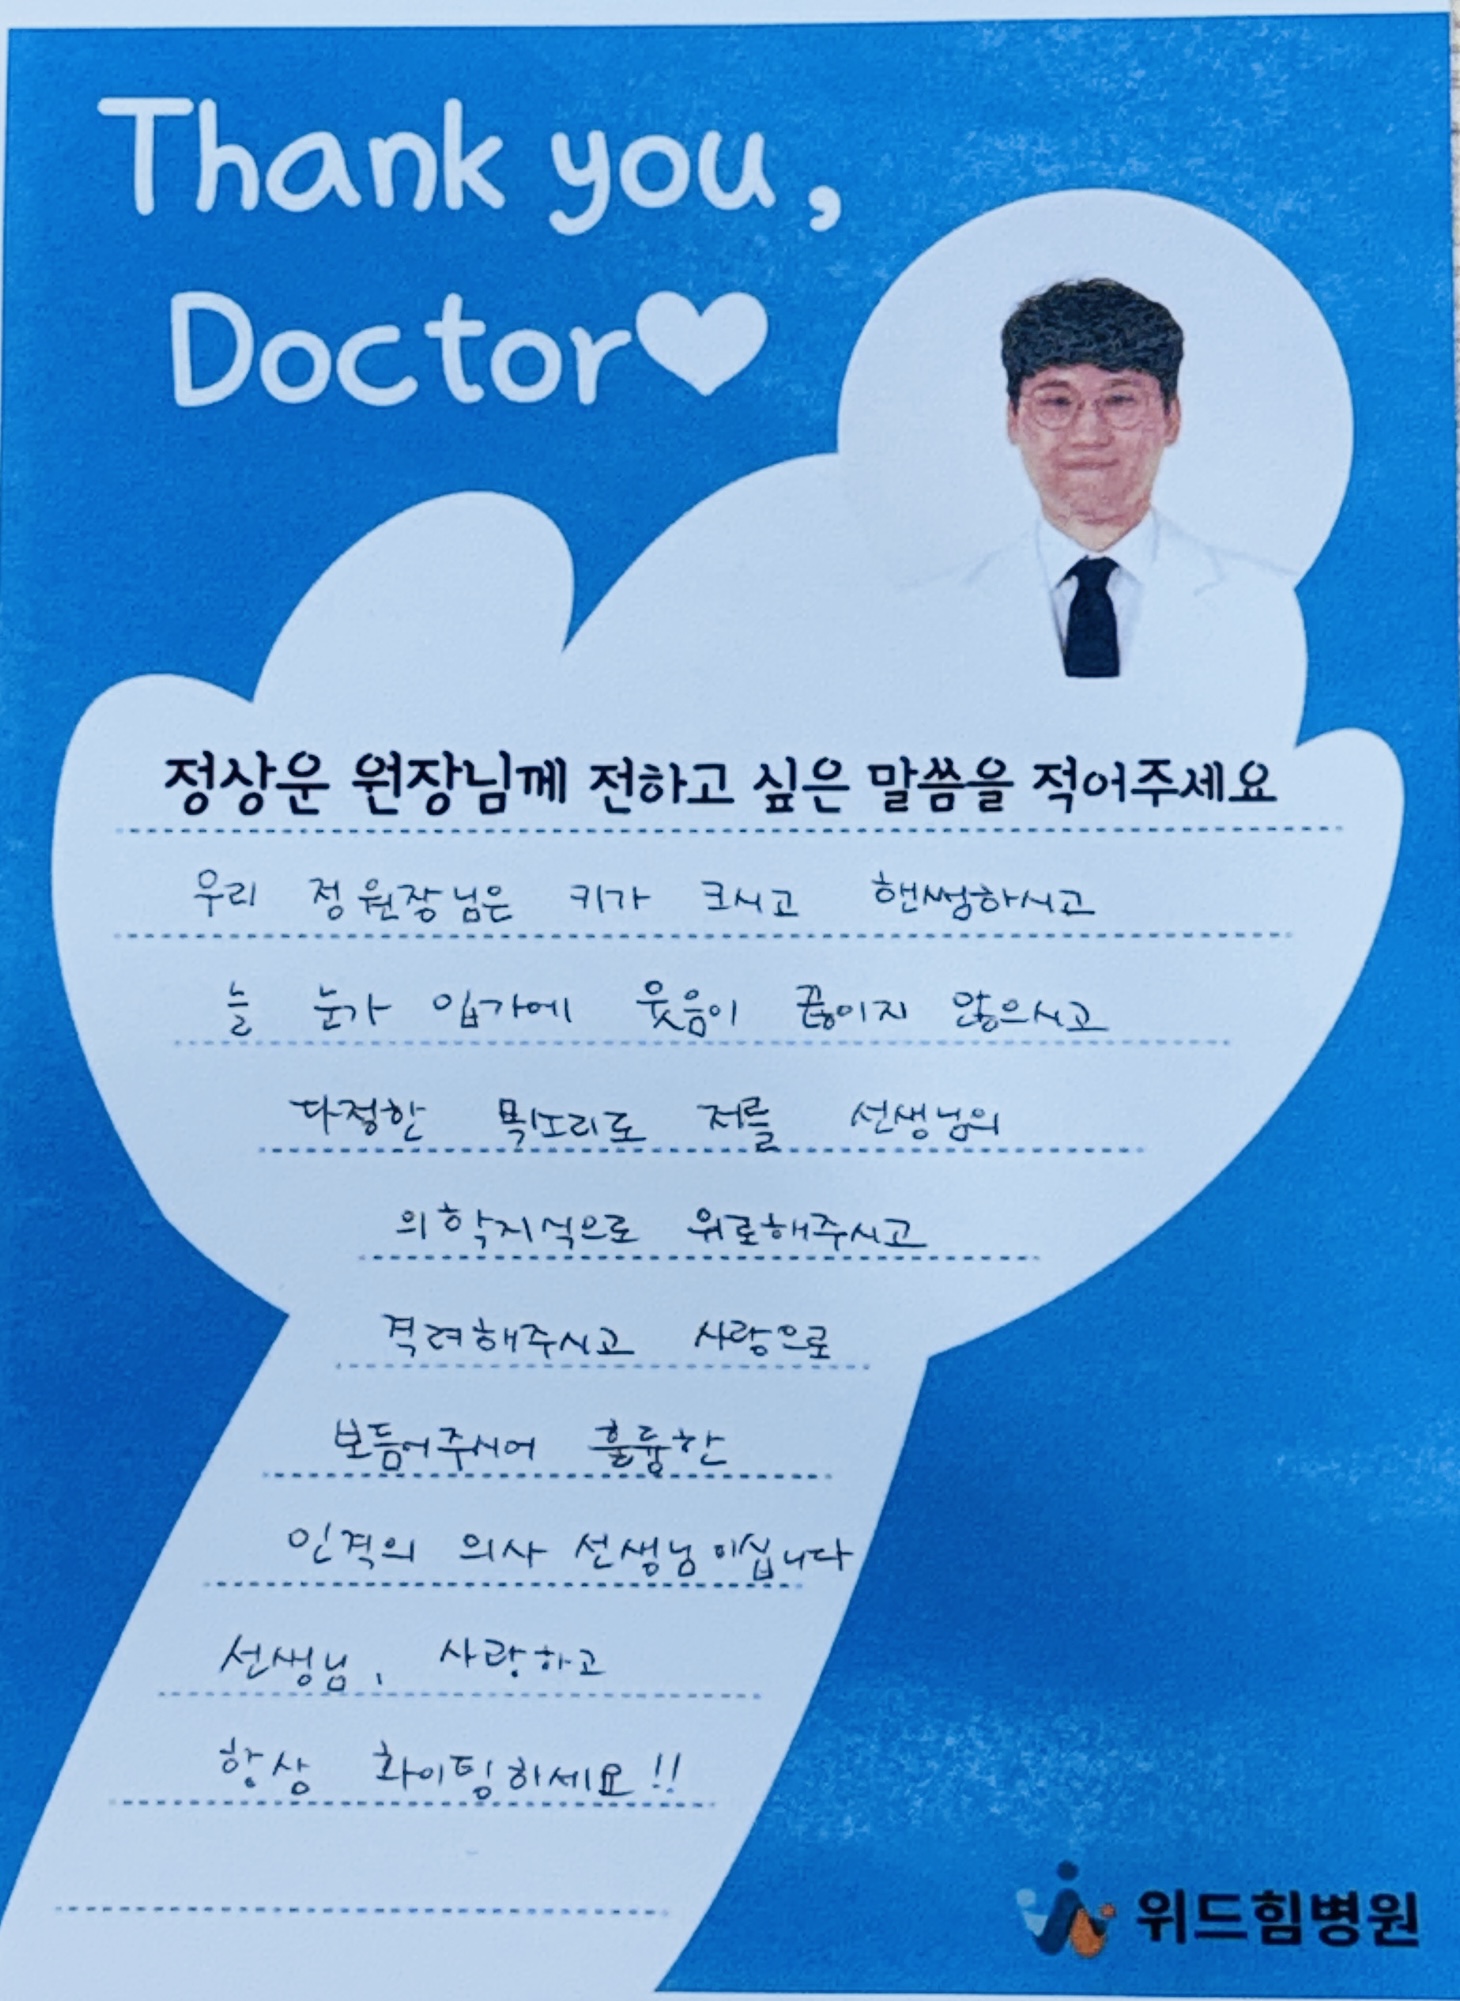 Thank you,
Doctor♥
정상운 원장님께 전하고 싶은 말씀을 적어주세요
우리 정원장님은 키가 크시고 핸썸하시고
늘 눈가 입가에 웃음이 끊이지 않으시고
다정한 목소리로 저를 선생님의
의학지식으로 위로해주시고
격려해주시고 사랑으로
보듬어주시어 훌륭한
인격의 의사 선생님이십니다
선생님, 사랑하고
항상 화이팅하세요!!
위드힘병원